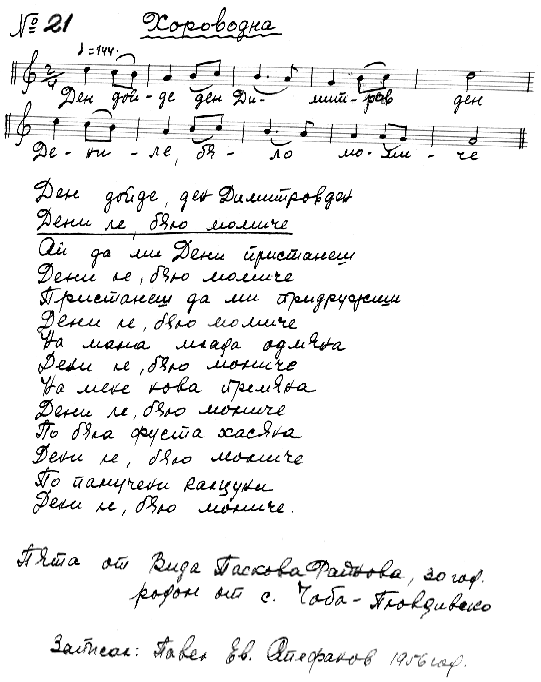 № 21 Хороводна
♩=144.
2/4
Ден дой-де ден Ди- мит-ров ден
Де-ни-ле, бя-ло мо-ми-че
Ден дойде, ден Димитровден
Дени ле, бяло момиче
Ай да ми Дени пристанеш
Дени ле, бяло момиче
Пристанеш да ми придружиш
Дени ле, бяло момиче
На мама млада одмяна
Дени ле, бяло момиче
На мене нова премяна
Дени ле, бяло момиче
По бяла фуста хасяна
Дени ле, бяло момиче
По памучени калцуни
Дени ле, бяло момиче.
Пята от Вида Паскова, 30 год.
родом от с. Чоба-Пловдивско
Записал: Павел Ев. Стефанов 1956 год.